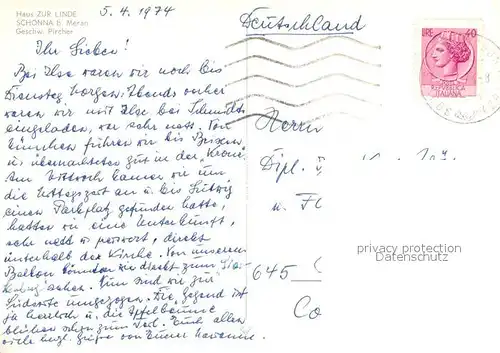 Haus ZUR LINDE
SCHONNA b. Meran
Geschw. Pircher
5.4.1974
Deutschland
LIRE 40
REPUBBLICA
ITALIANA
Ihr Lieben!
Bei Ilse waren wir noch bis
Dienstag Morgen. Abends vorher
waren wir mit Ilse bei Schmidts
eingeladen, war sehr nett. Von
München fuhren wir bis Brixen
u. übernachteten gut in der "Krone".
Am Mittwoch kamen wir um
die Mittagszeit an u. bis Ludwig
einen Parkplatz gefunden hatte,
hatten wir eine Unterkunft,
sehr nett u. preiswert, direkt
unterhalb der Kirche. Von unserem
Balkon konnten wir direkt zum
sehen. Nun sind wir zur
Südseite umgezogen. Die Gegend ist
ja herrlich u. die Apfelbäume
blühen schon zum Teil. Euch allen
viele herzl. Grüße von Eurer Marianne.
Herrn
Dipl.
u. F
645
Co
privacy protection
Datenschutz